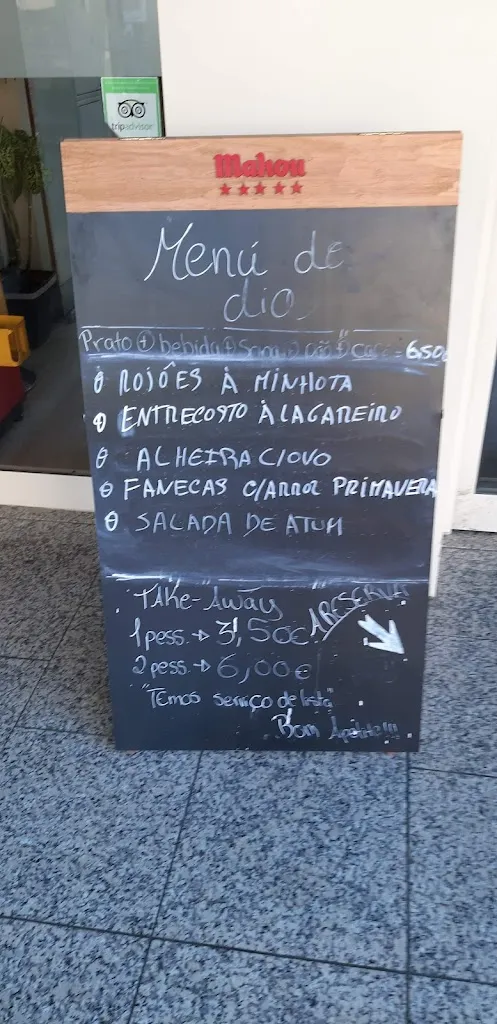 tripadvisor
Mahou
Menú de
dia
Prato + bebida + Sopa + pão + café = 6.50€
ROJÕES À MINHOTA
ENTRECOSTO À LAGAREIRO
ALHEIRA C/OVO
FANECAS C/ARROZ PRIMAVERA
SALADA DE ATUM
TAKE-AWAY
A RESERVA
1 pess. → 3,50€
2 pess. → 6,00€
"Temos serviço de lista"
Bom Apetite!!!